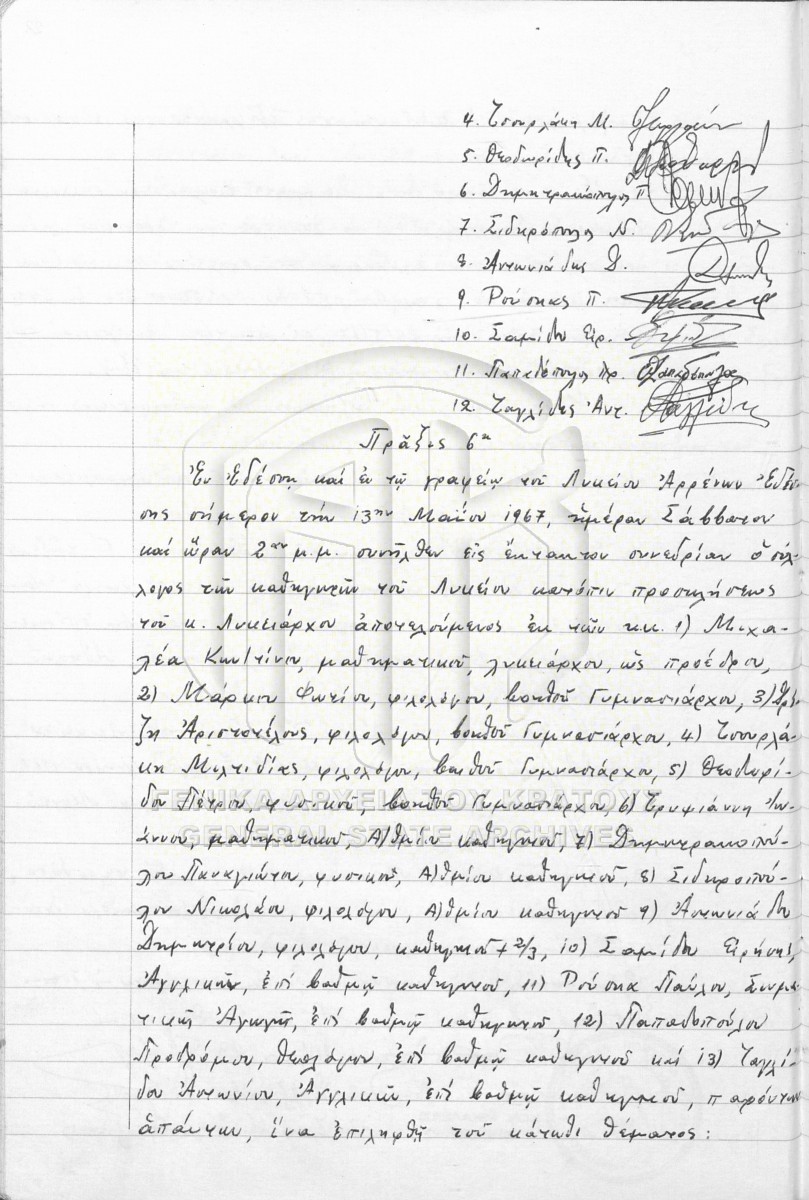 4. Τσουρλάκη Μ.
5. Θεοδωρίδης Π.
6. Δημητρακόπουλος Π.
7. Σιδηρόπουλος Ν.
8. Ἀντωνιάδης Δ.
9. Ρούσκας Π.
10. Σαμίδου Εἰρ.
11. Παπαδόπουλος Πρ.
12. Ταγλίδης Ἀντ.
Πρᾶξις 6η
Ἐν Ἐδέσσῃ καί ἐν τῷ γραφείῳ τοῦ Λυκείου Ἀρρένων Ἐδέσ-
σης σήμερον τήν 13ην Μαΐου 1967, ἡμέραν Σάββατον
καί ὥραν 2αν μ.μ. συνῆλθεν εἰς ἔκτακτον συνεδρίαν ὁ σύλ-
λογος τῶν καθηγητῶν τοῦ Λυκείου κατόπιν προσκλήσεως
τοῦ κ. Λυκειάρχου ἀποτελούμενος ἐκ τῶν κ.κ. 1) Μιχα-
λέα Κων/τίνου, μαθηματικοῦ, λυκειάρχου, ὡς προέδρου,
2) Μάρκου Φωτίου, φιλολόγου, βοηθοῦ Γυμνασιάρχου, 3)
ζη Ἀριστοτέλους, φιλολόγου, βοηθοῦ Γυμνασιάρχου, 4) Τσουρλά-
κη Μιλτιάδους, φιλολόγου, βοηθοῦ Γυμνασιάρχου, 5) Θεοδωρί-
δου Πέτρου, φυσικοῦ, βοηθοῦ Γυμνασιάρχου, 6) Τρυφιάννη Ἰω-
άννου, μαθηματικοῦ, Α)θμίου καθηγητοῦ, 7) Δημητρακοπού-
λου Παναγιώτου, φυσικοῦ, Α)θμίου καθηγητοῦ, 8) Σιδηροπού-
λου Νικολάου, φιλολόγου, Α)θμίου καθηγητοῦ 9) Ἀντωνιάδου
Δημητρίου, φιλολόγου, καθηγητοῦ + 2/3, 10) Σαμίδου Εἰρήνης,
Ἀγγλικῆς, ἐπί βαθμῷ καθηγητοῦ, 11) Ρούσκα Παύλου, Σωμα-
τικῆς Ἀγωγῆς, ἐπί βαθμῷ καθηγητοῦ, 12) Παπαδοπούλου
Προδρόμου, θεολόγου, ἐπί βαθμῷ καθηγητοῦ καί 13) Ταγλί-
δου Ἀντωνίου, Ἀγγλικῆς, ἐπί βαθμῷ καθηγητοῦ, παρόντων
ἁπάντων, ἵνα ἐπιληφθῇ τοῦ κάτωθι θέματος:
ΓΕΝΙΚΑ ΑΡΧΕΙΑ ΤΟΥ ΚΡΑΤΟΥΣ
GENERAL STATE ARCHIVES